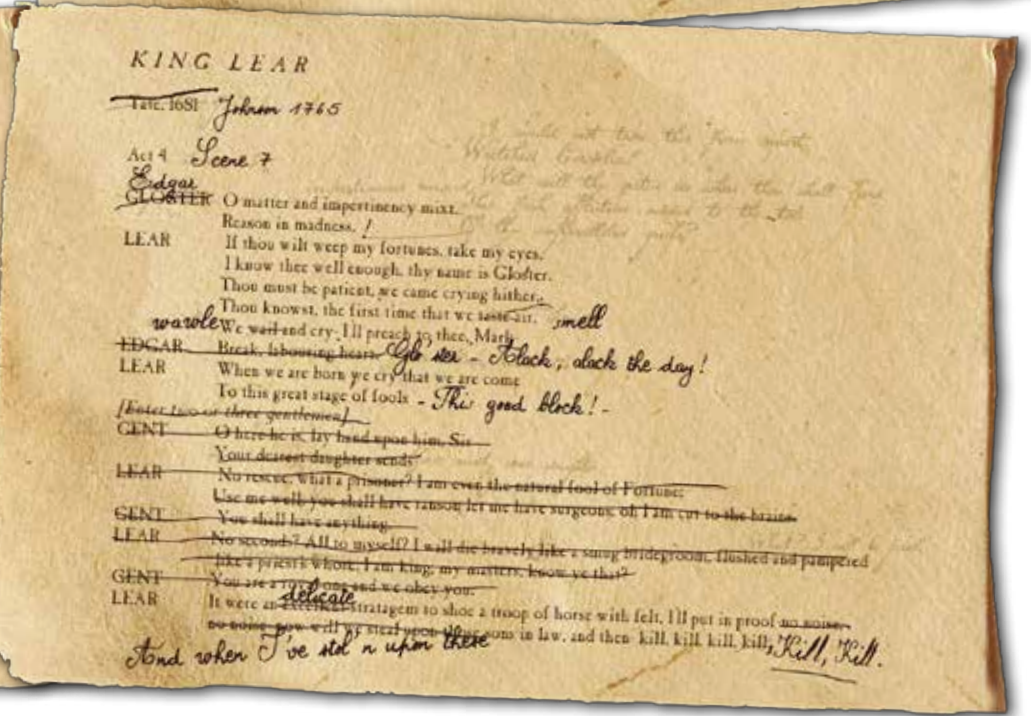 KING LEAR
Tate. 1681 Johnson 1765
Act 4 Scene 7
Edgar
GLOSTER O matter and impertinency mixt.
Reason in madness. !
LEAR If thou wilt weep my fortunes, take my eyes,
I know thee well enough, thy name is Gloster.
Thou must be patient, we came crying hither,
Thou knowst, the first time that we taste air. smell
wawle We wail and cry. I'll preach to thee, Mark
EDGAR Break, labouring heart. Gloster - Alack, alack the day!
LEAR When we are born we cry that we are come
To this great stage of fools - This good block! -
[Enter two or three gentlemen]
GENT O here he is, lay hand upon him, Sir
Your dearest daughter sends
LEAR No rescue, what a prisoner? I am even the natural fool of Fortune:
Use me well, you shall have ransom, let me have surgeons, oh I am cut to the brains.
GENT You shall have anything.
LEAR No seconds? All to myself? I wall die bravely like a smug bridegroom, flushed and pampered
like a priest's whore. I am king, my masters, know ye that?
GENT You are a royal one and we obey you.
delicate
LEAR It were an excellent stratagem to shoe a troop of horse with felt, I'll put in proof no noise,
no noise now will we steal upon these sons in law, and then kill, kill, kill, kill, Kill, Kill.
And when I've stol'n upon these